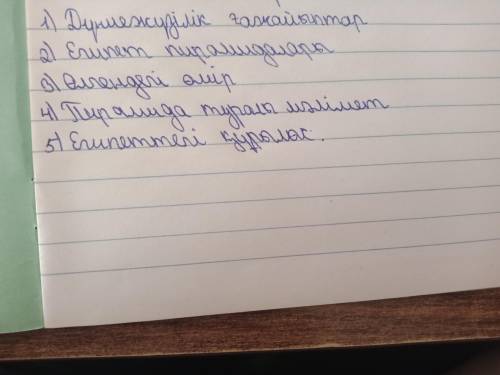 1) Дүниежүзілік ғажайыптар
2) Египет пирамидалары
3) Өлгендегі өмір
4) Пирамида туралы мәлімет
5) Египеттегі құрылыс.